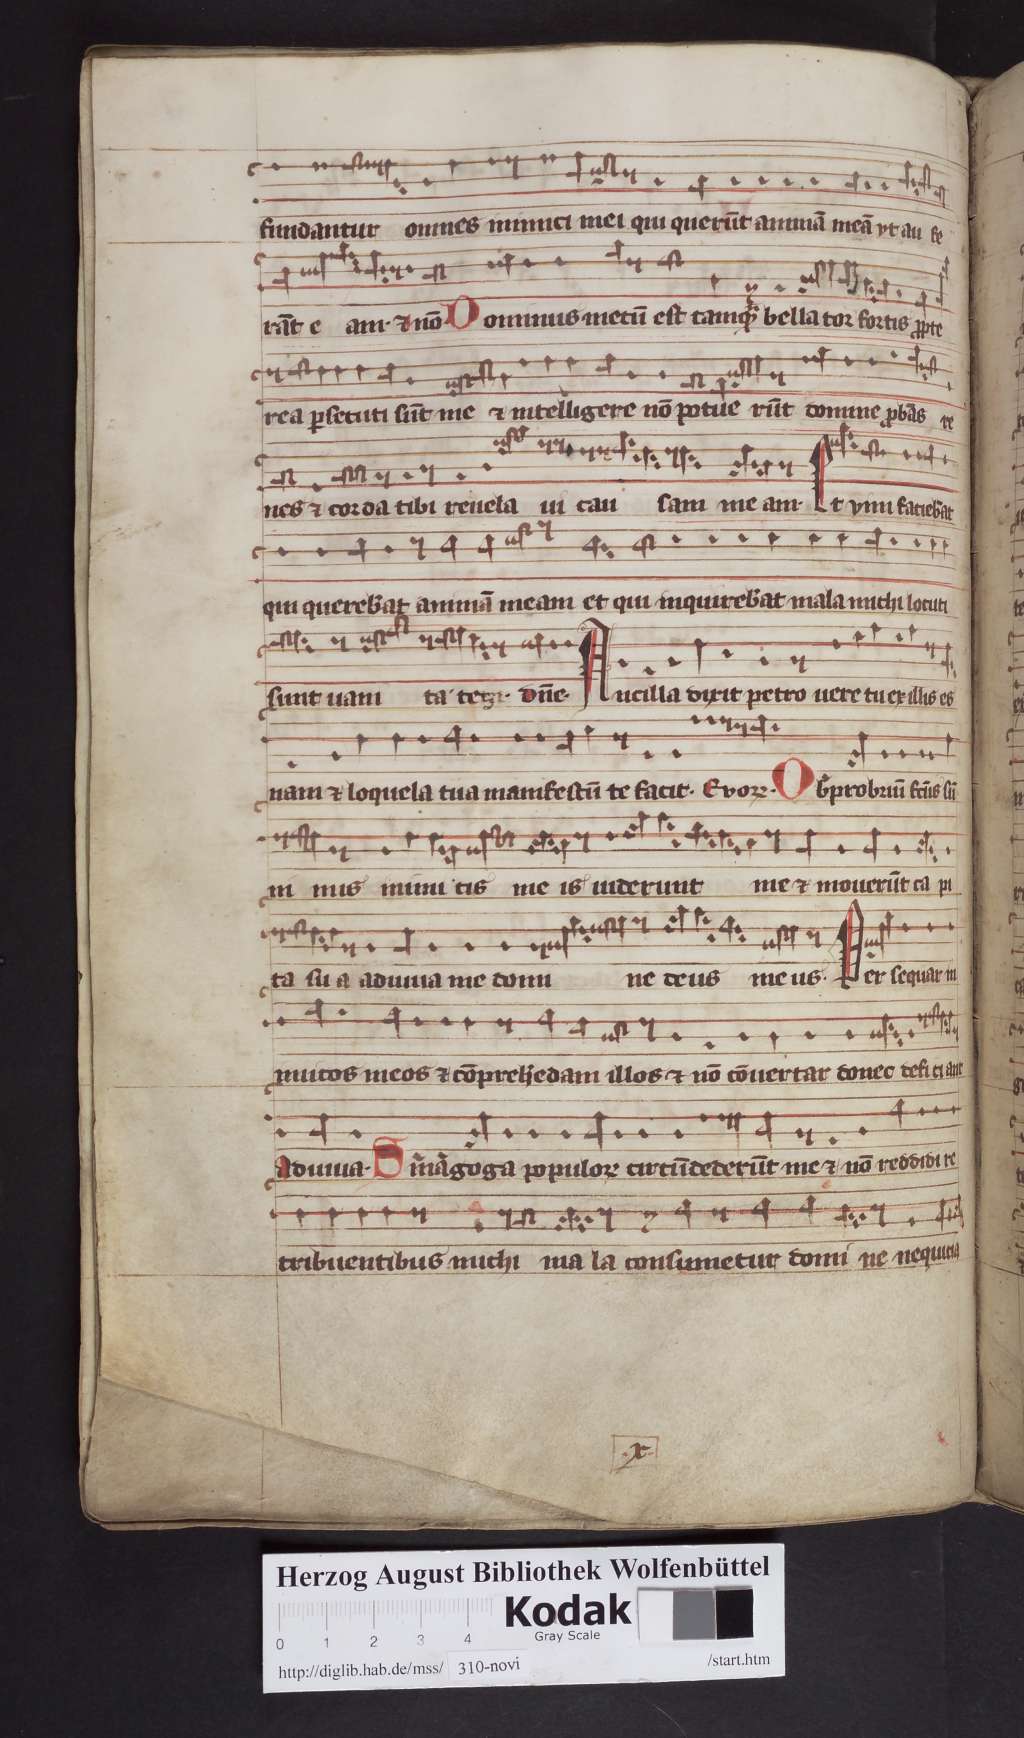 fundantur omnes inimici mei qui querūt animā meā ut au fe
rāt e am· ⁊ nō Dominus mecū est tamqͣ bella tor fortis ꝓpte
rea ꝑsecuti sūt me ⁊ intelligere nō potue rūt domine ꝓbās re
nes ⁊ corda tibi reuela ui cau sam me am· Et vim faciebāt
qui querebāt animā meam et qui inquirebāt mala michi locuti
sunt uani ta tes· dn̄e· Ancilla dixit petro uere tu ex illis es
nam ⁊ loquela tua manifestū te facit· Evoꝝ· Obprobriū fc̄us sū
ni mus inimi cis me is uiderunt me ⁊ mouerūt ca pi
ta su a adiuua me domi ne deus me us· Per sequar in
imicos meos ⁊ cōprehedam illos ⁊ nō cōuertar donec defi ci ant
Adiuua· Sinagoga populoꝝ circūdederūt me ⁊ nō reddidi re
tribuentibus michi ma la consumetur domi ne nequicia
·x·
Herzog August Bibliothek Wolfenbüttel
Kodak
Gray Scale
0 1 2 3 4
http://diglib.hab.de/mss/ 310-novi /start.htm